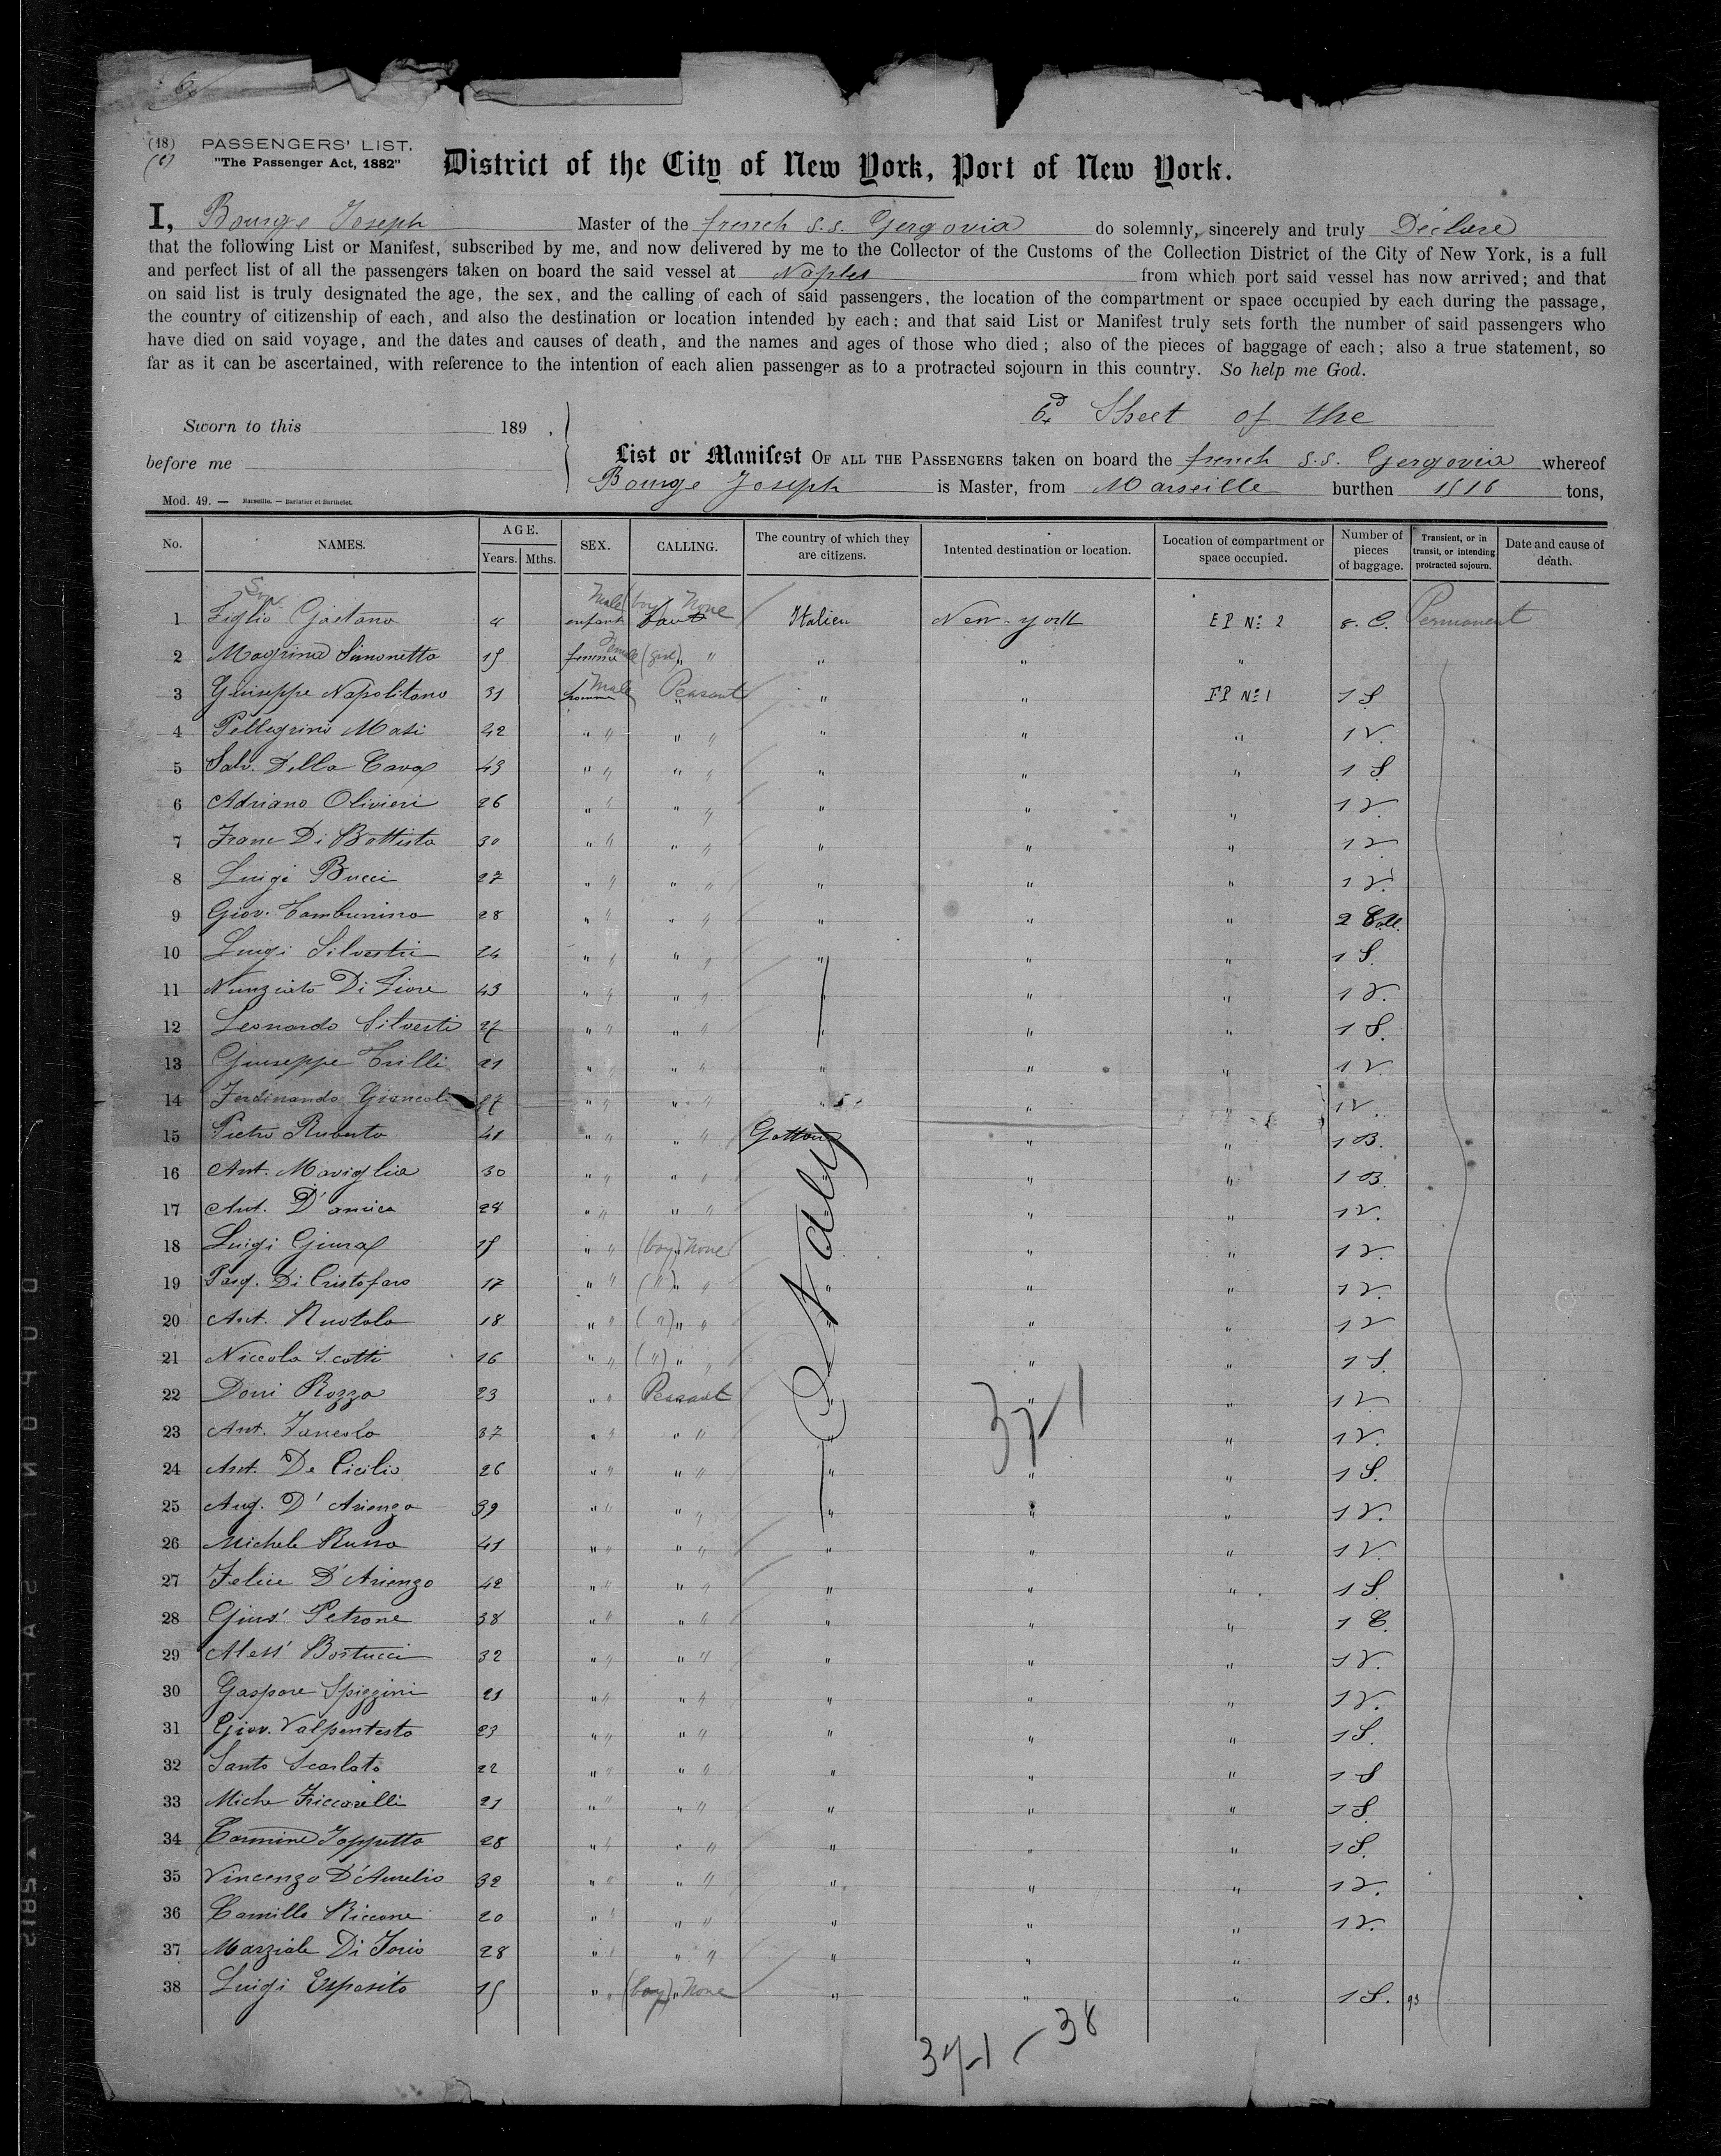 (18) PASSENGERS' LIST.
"The Passenger Act, 1882"
District of the City of New York, Port of New York.
I, Bourge Joseph Master of the french s.s. Gergovia do solemnly, sincerely and truly Déclare
that the following List or Manifest, subscribed by me, and now delivered by me to the Collector of the Customs of the Collection District of the City of New York, is a full
and perfect list of all the passengers taken on board the said vessel at Naples from which port said vessel has now arrived; and that
on said list is truly designated the age, the sex, and the calling of each of said passengers, the location of the compartment or space occupied by each during the passage,
the country of citizenship of each, and also the destination or location intended by each: and that said List or Manifest truly sets forth the number of said passengers who
have died on said voyage, and the dates and causes of death, and the names and ages of those who died; also of the pieces of baggage of each; also a true statement, so
far as it can be ascertained, with reference to the intention of each alien passenger as to a protracted sojourn in this country. So help me God.
Sheet of the
Sworn to this 189 ,
before me
List or Manifest OF ALL THE PASSENGERS taken on board the french s.s. Gergovia whereof
Bourge Joseph is Master, from Marseille burthen 1516 tons,
Mod. 49. — Marseille. — Barlatier et Barthelet.
No. NAMES. AGE. Years. Mths. SEX. CALLING. The country of which they are citizens. Intented destination or location. Location of compartment or space occupied. Number of pieces of baggage. Transient, or in transit, or intending protracted sojourn. Date and cause of death.
1 Figlio Gaetano 4 enfant Male (boy) None Italien New-york EP No 2 8. C. Permanent
2 Simonetta 15 femme Female (girl) " " " " "
3 Giuseppe Napolitano 31 homme Male " Peasant " " FP No 1 1 S
4 Pellegrino Masi 42 " " " " " " " 1 V.
5 Salv. Della Cava 43 " " " " " " " 1 S.
6 Adriano Olivieri 26 " " " " " " " 1 V.
7 Franc Di Battista 30 " " " " " " " 1 V
8 Luigi Bucci 27 " " " " " " " 1 V.
9 Giov. Tamburrino 28 " " " " " " " 2 Coll.
10 Luigi Silvestri 24 " " " " " " " 1 S.
11 Nunziato Di Fiore 43 " " " " " " " 1 V.
12 Leonardo Silvestri 27 " " " " " " " 1 S.
13 Giuseppe Trilli 21 " " " " " " " 1 V
14 Ferdinando " " " " " " " 1 V.
15 Pietro Ruberto 41 " " " " " " 1 B.
16 Ant. Maviglia 30 " " " " " " 1 B.
17 Ant. D'amico 28 " " " " " " 1 V.
18 Luigi Giura 15 " " (boy) " None " " 1 V.
19 Pasq. Di Cristofaro 17 " " (") " " " " " 1 V.
20 Ant. Ruotolo 18 " " (") " " " " 1 V
21 Niccola Scotti 16 " " (") " " " " 1 S.
22 Doni Rozzo 23 " " Peasant " " " 1 V
23 Ant. 37 " " " " " " " 1 V.
24 Ant. De Cicilio 26 " " " " " " " 1 S.
25 Aug. D'Arienzo 39 " " " " " " " 1 V.
26 Michele Russo 41 " " " " " " " 1 V.
27 Felice D'Arienzo 42 " " " " " " " 1 S.
28 Gius' Petrone 38 " " " " " " " 1 C.
29 Aless' Bortucci 32 " " " " " " " 1 V.
30 Gaspare Spizzini 21 " " " " " " " 1 V.
31 Giov. Valpentesta 23 " " " " " " " 1 S.
32 Santo Scarlato 22 " " " " " " " 1 S
33 Miche Friccarelli 21 " " " " " " " 1 S.
34 Carmine Iappetta 28 " " " " " " " 1 S.
35 Vincenzo D'Aurelio 32 " " " " " " " 1 V.
36 Camillo Riccone 20 " " " " " " " 1 V.
37 Marziale Di Iorio 28 " " " " " " "
38 Luigi Esposito 15 " " (boy) " None " " " 1 S. 93
Italy
371
371 - 38